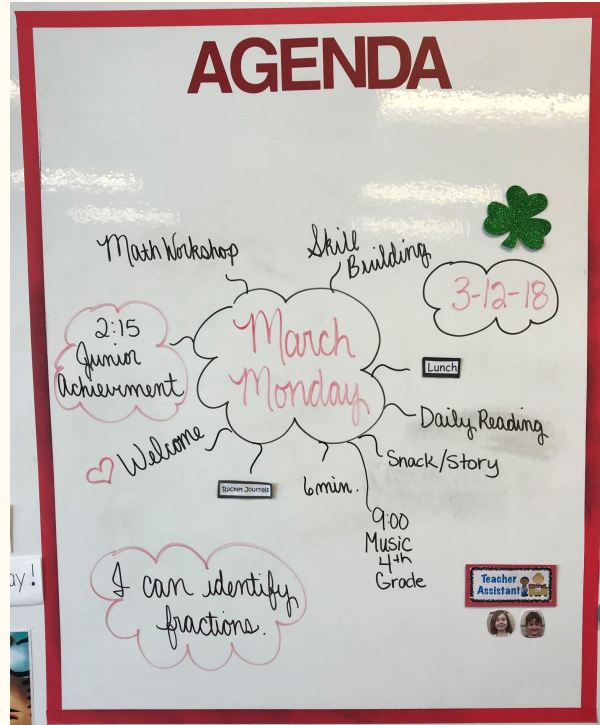 AGENDA
Math Workshop
Skill
Building
3-12-18
2:15
Junior
Achievement
March
Monday
Lunch
Daily Reading
Snack/Story
Welcome
Rocket Journals
6min.
9:00
Music
4th
Grade
I can identify
fractions.
Teacher
Assistant
ay!